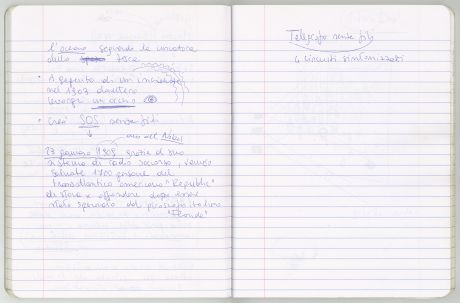 l'oceano seguendo la curvatura
della terra
• A seguito di un incidente
nel 1903 dovette
un occhio
• Creò SOS senza fili
anno del Nobel
23 gennaio 1909 grazie al suo
sistema di radio soccorso, vennero
salvate 1700 persone del
transatlantico americano "Republic"
di stava x affondare dopo essere
stato speronato dal piroscafo italiano
"Florida"
Telegrafo senza fili
4 circuiti sintonizzati